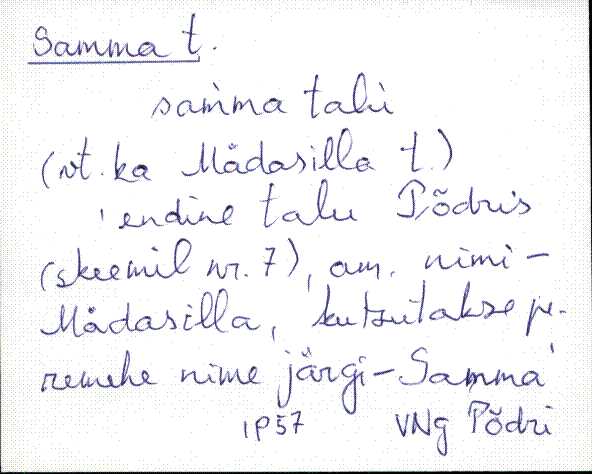 Samma t.
sam̀ma talù
(vt. ka Mädasilla t.)
'endine talu Põdris
(skeemil nr. 7), am. nimi –
Mädasilla, kutsutakse pe-
remehe nime järgi – Samma'
IP57 VNg Põdri